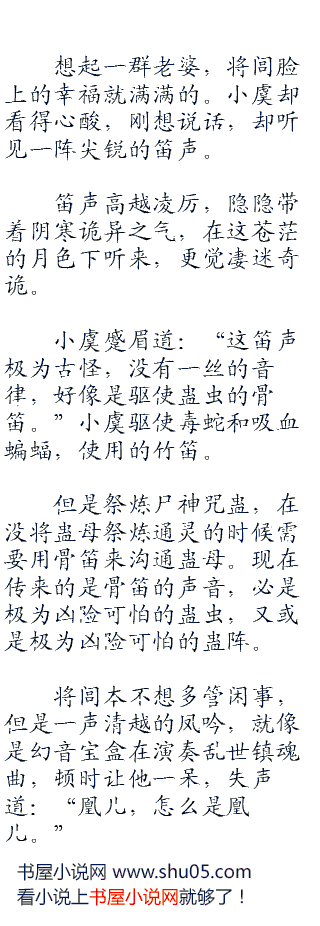 想起一群老婆，将闾脸
上的幸福就满满的。小虞却
看得心酸，刚想说话，却听
见一阵尖锐的笛声。
笛声高越凌厉，隐隐带
着阴寒诡异之气，在这苍茫
的月色下听来，更觉凄迷奇
诡。
小虞蹙眉道：“这笛声
极为古怪，没有一丝的音
律，好像是驱使蛊虫的骨
笛。”小虞驱使毒蛇和吸血
蝙蝠，使用的竹笛。
但是祭炼尸神咒蛊，在
没将蛊母祭炼通灵的时候需
要用骨笛来沟通蛊母。现在
传来的是骨笛的声音，必是
极为凶险可怕的蛊虫，又或
是极为凶险可怕的蛊阵。
将闾本不想多管闲事，
但是一声清越的凤吟，就像
是幻音宝盒在演奏乱世镇魂
曲，顿时让他一呆，失声
道：“凰儿，怎么是凰
儿。”
书屋小说网 www.shu05.com
看小说上书屋小说网就够了！